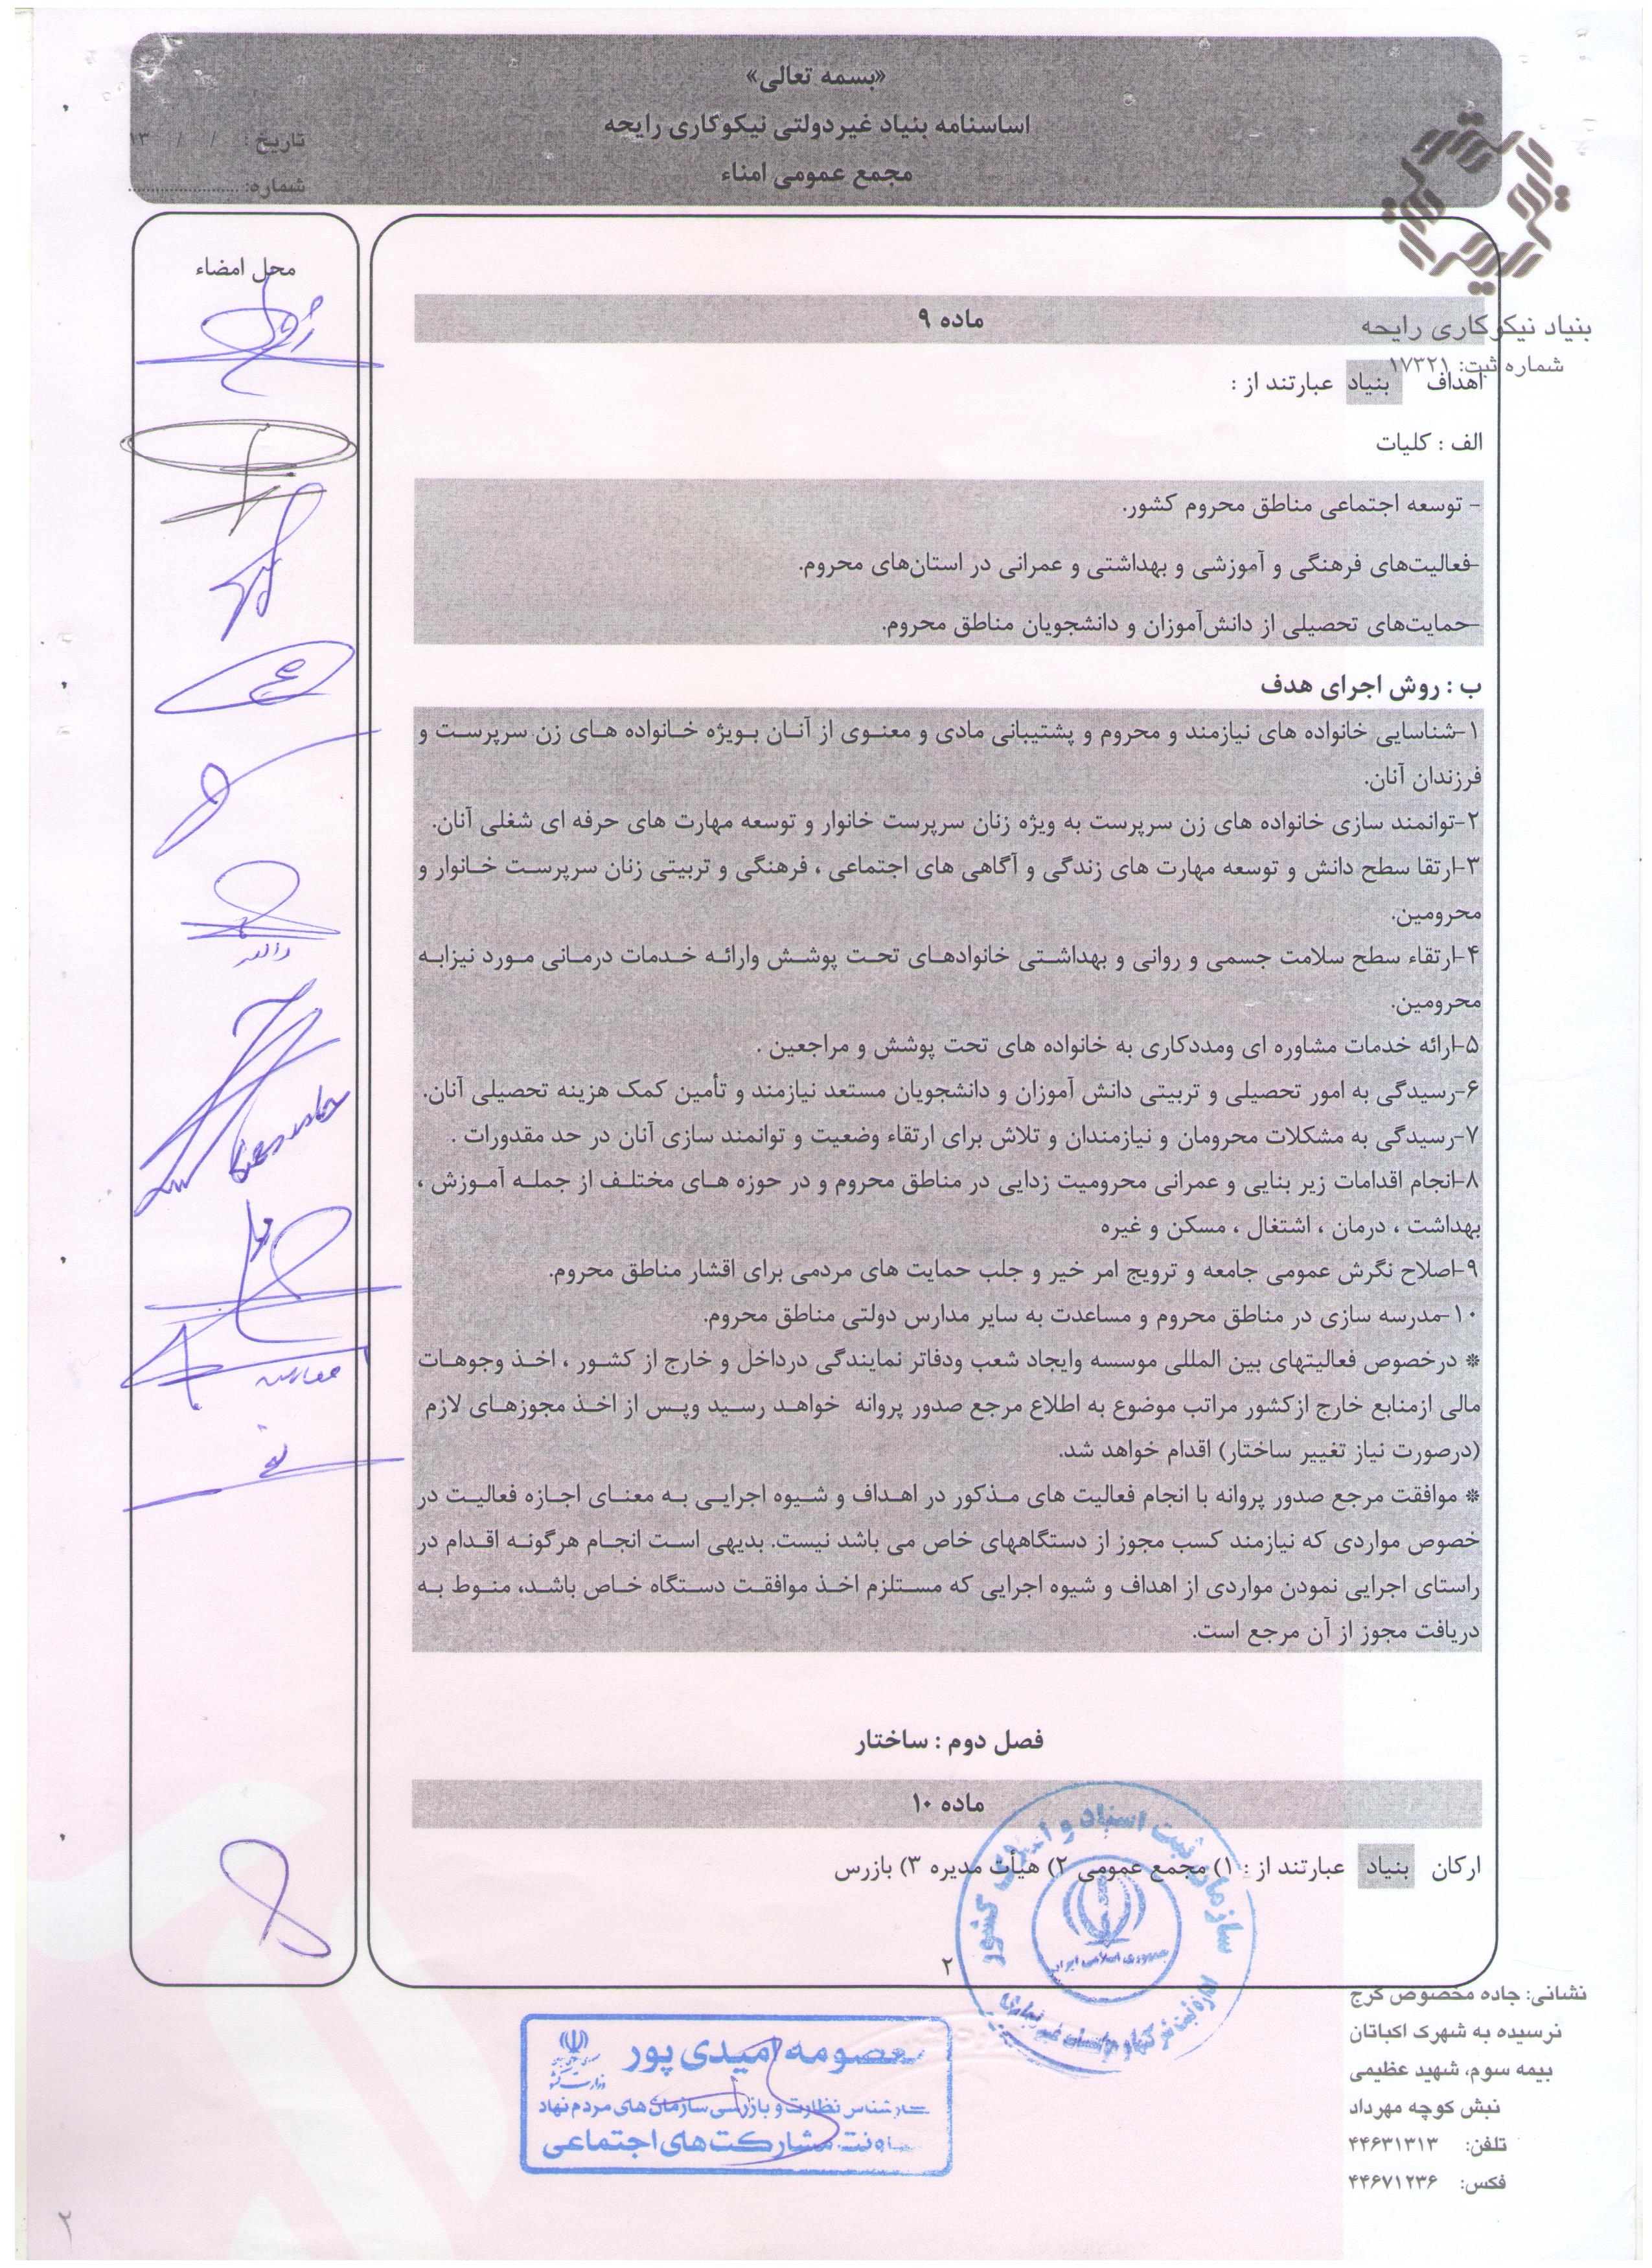 «بسمه تعالی»
اساسنامه بنیاد غیردولتی نیکوکاری رایحه
مجمع عمومی امناء
تاریخ : / / ۱۳
شماره: ........................
بنیاد نیکوکاری رایحه
شماره ثبت: ۱۷۳۲۱
محل امضاء
ماده ۹
اهداف بنیاد عبارتند از :
الف : کلیات
- توسعه اجتماعی مناطق محروم کشور.
-فعالیت‌های فرهنگی و آموزشی و بهداشتی و عمرانی در استان‌های محروم.
-حمایت‌های تحصیلی از دانش‌آموزان و دانشجویان مناطق محروم.
ب : روش اجرای هدف
۱-شناسایی خانواده های نیازمند و محروم و پشتیبانی مادی و معنوی از آنان بویژه خانواده های زن سرپرست و
فرزندان آنان.
۲-توانمند سازی خانواده های زن سرپرست به ویژه زنان سرپرست خانوار و توسعه مهارت های حرفه ای شغلی آنان.
۳-ارتقا سطح دانش و توسعه مهارت های زندگی و آگاهی های اجتماعی ، فرهنگی و تربیتی زنان سرپرست خانوار و
محرومین.
۴-ارتقاء سطح سلامت جسمی و روانی و بهداشتی خانوادهای تحت پوشش وارائه خدمات درمانی مورد نیزابه
محرومین.
۵-ارائه خدمات مشاوره ای ومددکاری به خانواده های تحت پوشش و مراجعین .
۶-رسیدگی به امور تحصیلی و تربیتی دانش آموزان و دانشجویان مستعد نیازمند و تأمین کمک هزینه تحصیلی آنان.
۷-رسیدگی به مشکلات محرومان و نیازمندان و تلاش برای ارتقاء وضعیت و توانمند سازی آنان در حد مقدورات .
۸-انجام اقدامات زیر بنایی و عمرانی محرومیت زدایی در مناطق محروم و در حوزه های مختلف از جمله آموزش ،
بهداشت ، درمان ، اشتغال ، مسکن و غیره
۹-اصلاح نگرش عمومی جامعه و ترویج امر خیر و جلب حمایت های مردمی برای اقشار مناطق محروم.
۱۰-مدرسه سازی در مناطق محروم و مساعدت به سایر مدارس دولتی مناطق محروم.
* درخصوص فعالیتهای بین المللی موسسه وایجاد شعب ودفاتر نمایندگی درداخل و خارج از کشور ، اخذ وجوهات
مالی ازمنابع خارج ازکشور مراتب موضوع به اطلاع مرجع صدور پروانه خواهد رسید وپس از اخذ مجوزهای لازم
(درصورت نیاز تغییر ساختار) اقدام خواهد شد.
* موافقت مرجع صدور پروانه با انجام فعالیت های مذکور در اهداف و شیوه اجرایی به معنای اجازه فعالیت در
خصوص مواردی که نیازمند کسب مجوز از دستگاههای خاص می باشد نیست. بدیهی است انجام هرگونه اقدام در
راستای اجرایی نمودن مواردی از اهداف و شیوه اجرایی که مستلزم اخذ موافقت دستگاه خاص باشد، منوط به
دریافت مجوز از آن مرجع است.
فصل دوم : ساختار
ماده ۱۰
ارکان بنیاد عبارتند از : ۱) مجمع عمومی ۲) هیأت مدیره ۳) بازرس
۲
سازمان ثبت اسناد و املاک کشور
جمهوری اسلامی ایران
اداره ثبت شرکتها و موسسات غیر تجاری
معصومه امیدی پور
وزارت کشور
کارشناس نظارت و بازرسی سازمان های مردم نهاد
معاونت مشارکت های اجتماعی
نشانی: جاده مخصوص کرج
نرسیده به شهرک اکباتان
بیمه سوم، شهید عظیمی
نبش کوچه مهرداد
تلفن: ۴۴۶۳۱۳۱۳
فکس: ۴۴۶۷۱۲۳۶
۲